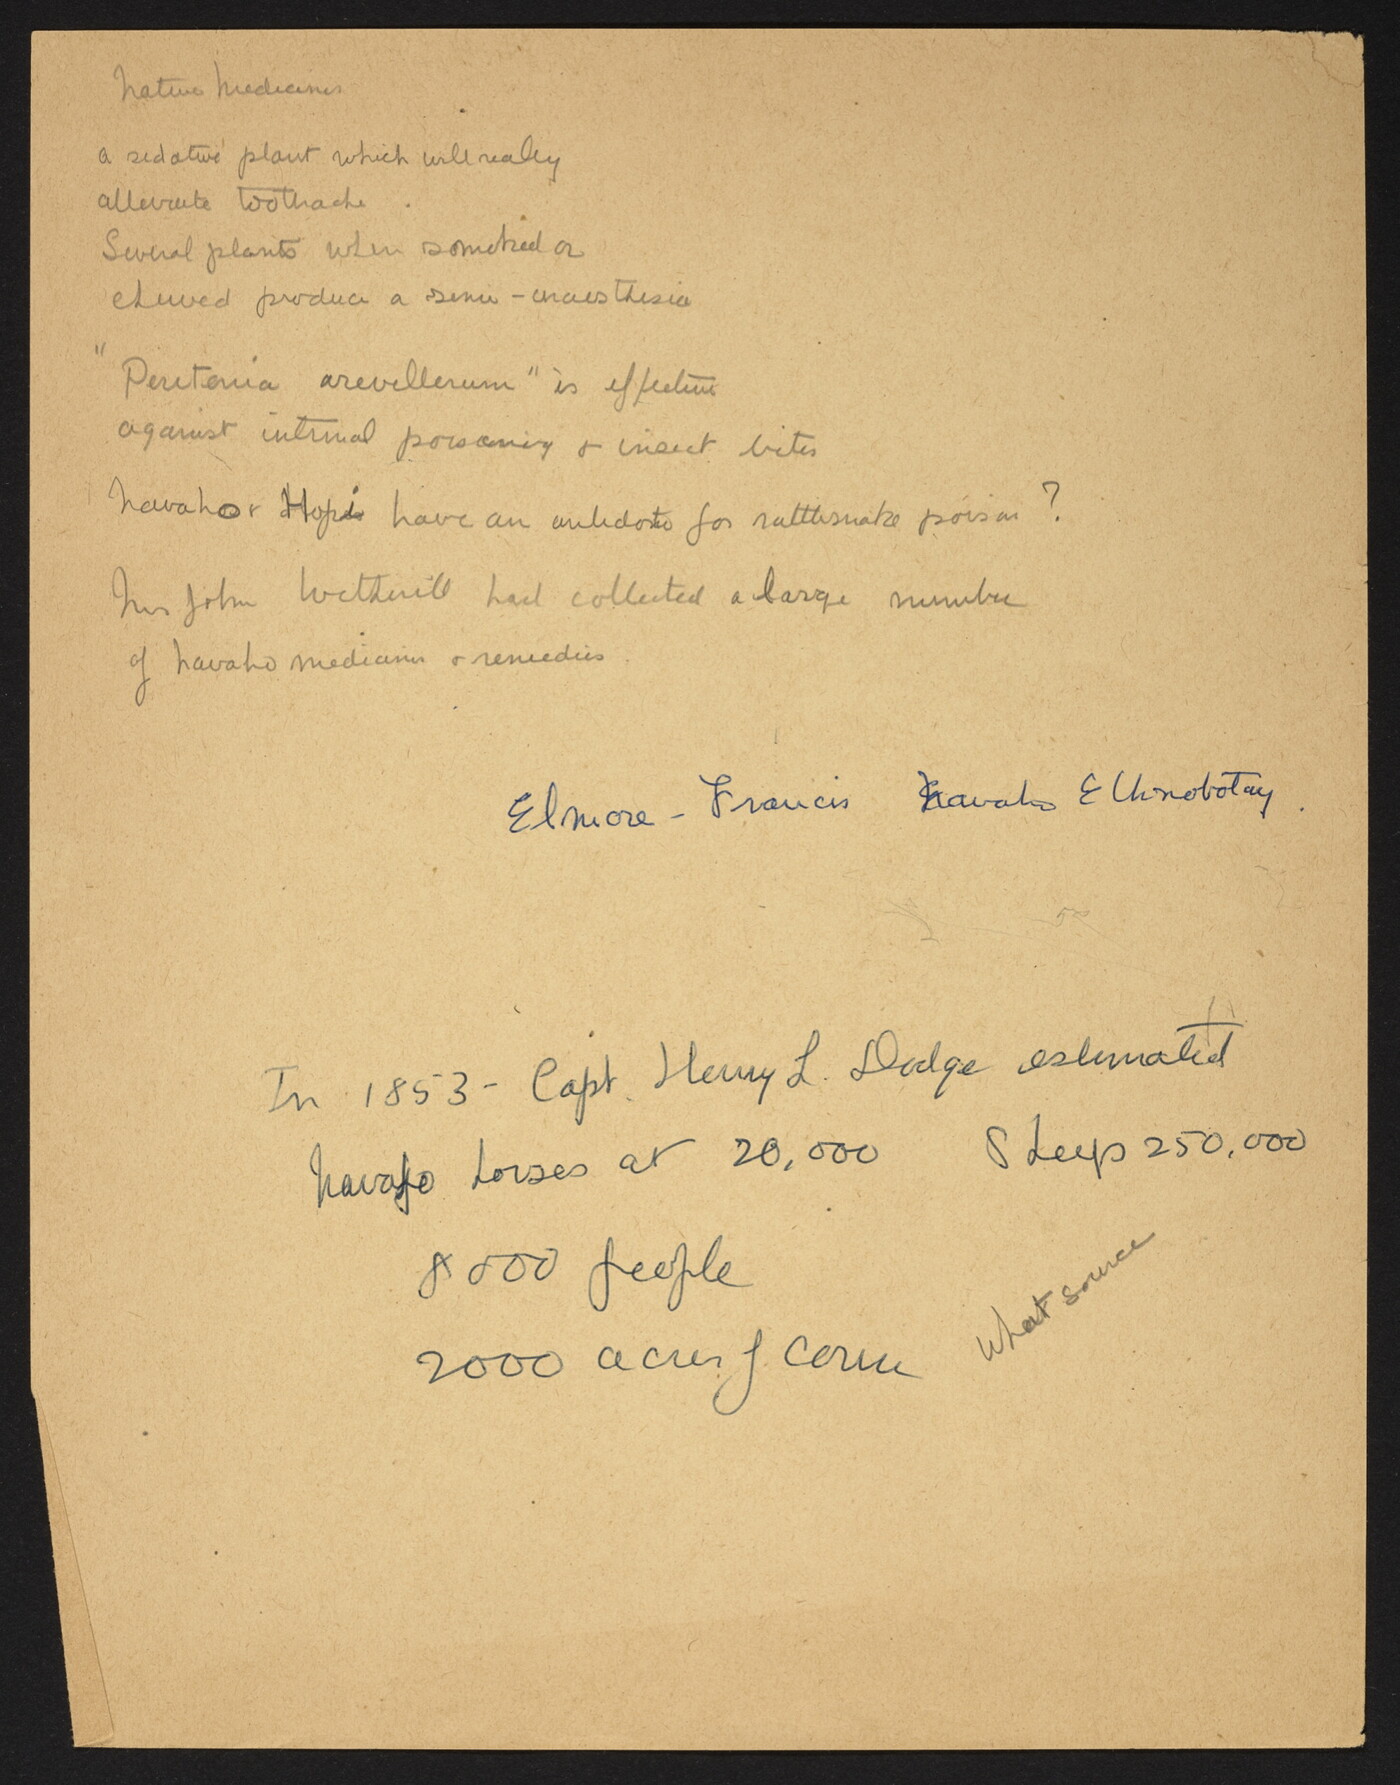 Native Medicines
a sedative plant which will really
alleviate toothache .
Several plants when somoked or
chewed produce a semi-anaesthesia
" is effective
against internal poisoning & insect bites
Navaho & Hopi have an antidote for rattlesnake poison ?
Mrs John Wetherill had collected a large number
of Navaho medicines & remedies.
Elmore - Francis Navaho Ethnobotay .
In 1853 - Capt. Henry L. Dodge estimated
Navajo horses at 20,000 Sheeps 250,000
8000 people
2000 acres of corn
What source